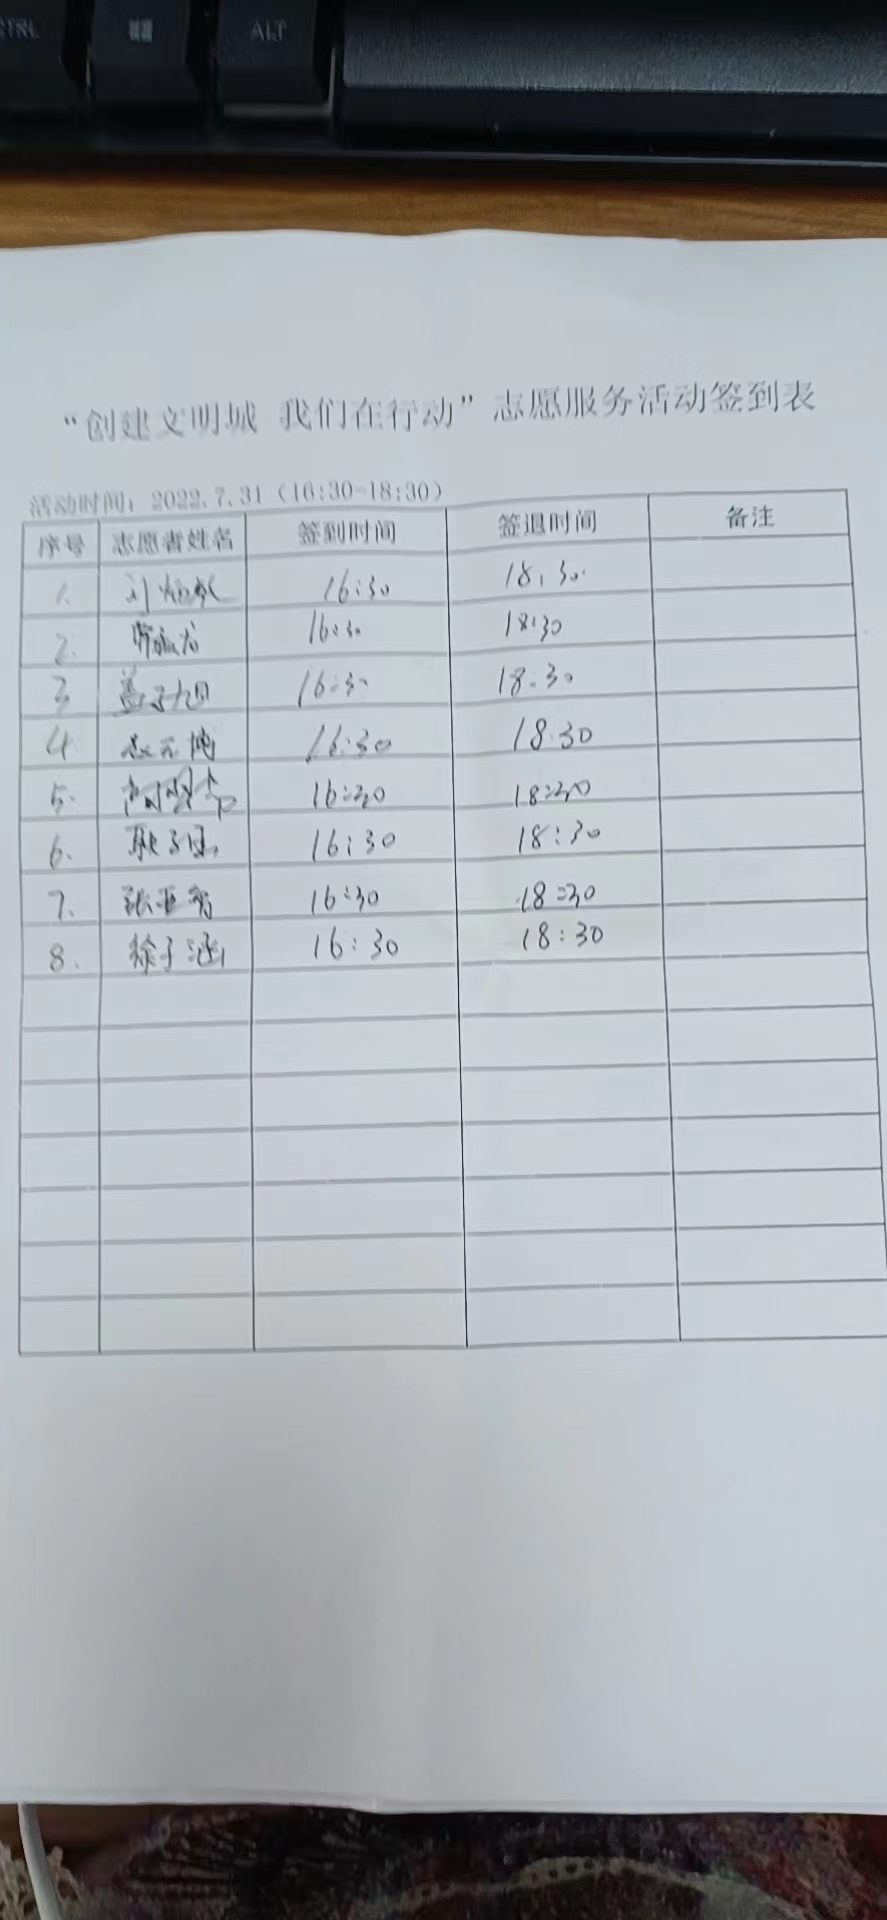 CTRL ALT
“创建文明城 我们在行动”志愿服务活动签到表
活动时间：2022.7.31（16:30-18:30）
序号 志愿者姓名 签到时间 签退时间 备注
1. 16:30 18:30
2. 16:30 18:30
3 盖子旭 16:30 18.30
4 赵元博 16:30 18.30
5. 16:30 18:30
6. 耿子 16:30 18:30
7. 张亚 16:30 18:30
8. 徐子涵 16:30 18:30